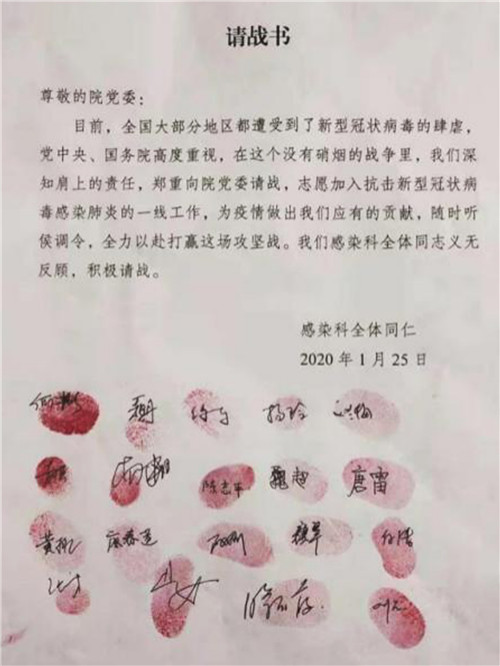 请战书
尊敬的院党委：
目前，全国大部分地区都遭受到了新型冠状病毒的肆虐，
党中央、国务院高度重视，在这个没有硝烟的战争里，我们深
知肩上的责任，郑重向院党委请战，志愿加入抗击新型冠状病
毒感染肺炎的一线工作，为疫情做出我们应有的贡献，随时听
侯调令，全力以赴打赢这场攻坚战。我们感染科全体同志义无
反顾，积极请战。
感染科全体同仁
2020 年 1 月 25 日
杨玲
陈志军 魏超 唐雷